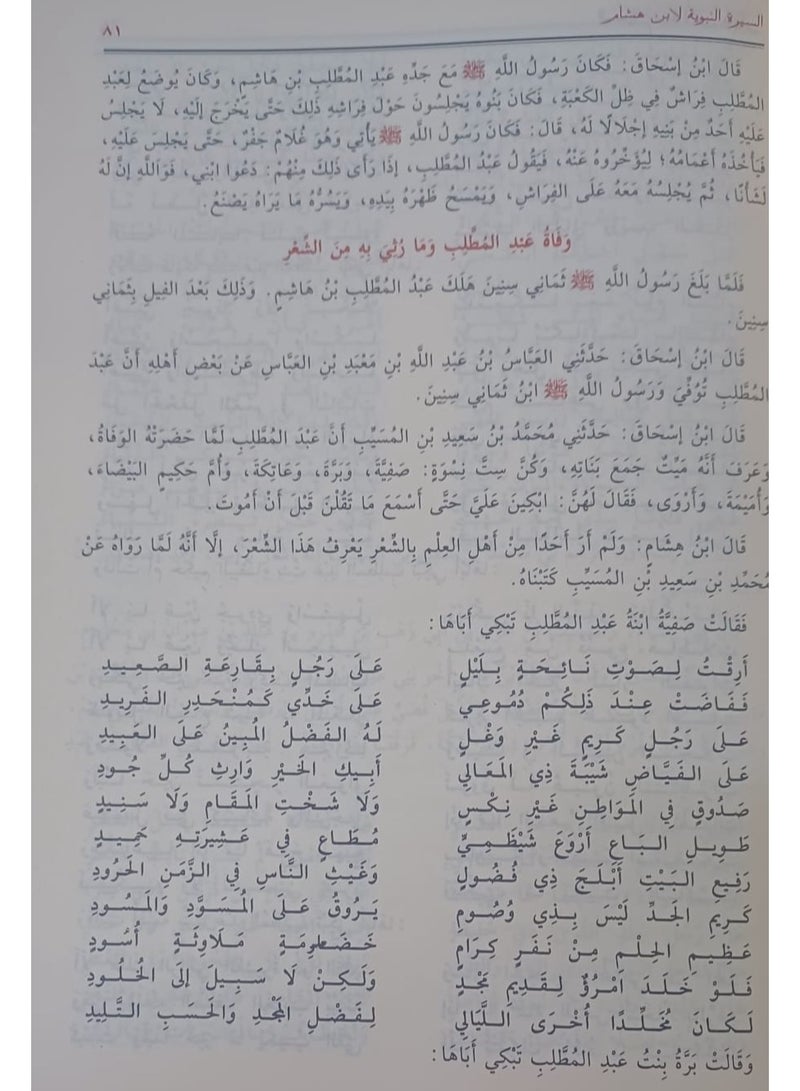 السيرة النبوية لابن هشام ٨١
قَالَ ابْنُ إِسْحَاقَ: فَكَانَ رَسُولُ اللَّهِ ﷺ مَعَ جَدِّهِ عَبْدِ المُطَّلِبِ بْنِ هَاشِمٍ، وَكَانَ يُوضَعُ لِعَبْدِ
المُطَّلِبِ فِرَاشٌ فِي ظِلِّ الكَعْبَةِ، فَكَانَ بَنُوهُ يَجْلِسُونَ حَوْلَ فِرَاشِهِ ذَلِكَ حَتَّى يَخْرُجَ إِلَيْهِ، لَا يَجْلِسُ
عَلَيْهِ أَحَدٌ مِنْ بَنِيهِ إِجْلَالًا لَهُ، قَالَ: فَكَانَ رَسُولُ اللَّهِ ﷺ يَأْتِي وَهُوَ غُلَامٌ جَفْرٌ، حَتَّى يَجْلِسَ عَلَيْهِ،
فَيَأْخُذُهُ أَعْمَامُهُ؛ لِيُؤَخِّرُوهُ عَنْهُ، فَيَقُولُ عَبْدُ المُطَّلِبِ، إِذَا رَأَى ذَلِكَ مِنْهُمْ: دَعُوا ابْنِي، فَوَاللَّهِ إِنَّ لَهُ
لَشَأْنًا، ثُمَّ يُجْلِسُهُ مَعَهُ عَلَى الفِرَاشِ، وَيَمْسَحُ ظَهْرَهُ بِيَدِهِ، وَيَسُرُّهُ مَا يَرَاهُ يَصْنَعُ.
وَفَاةُ عَبْدِ المُطَّلِبِ وَمَا رُثِيَ بِهِ مِنَ الشِّعْرِ
فَلَمَّا بَلَغَ رَسُولُ اللَّهِ ﷺ ثَمَانِي سِنِينَ هَلَكَ عَبْدُ المُطَّلِبِ بْنُ هَاشِمٍ. وَذَلِكَ بَعْدَ الفِيلِ بِثَمَانِي
سِنِينَ.
قَالَ ابْنُ إِسْحَاقَ: حَدَّثَنِي العَبَّاسُ بْنُ عَبْدِ اللَّهِ بْنِ مَعْبَدِ بْنِ العَبَّاسِ عَنْ بَعْضِ أَهْلِهِ أَنَّ عَبْدَ
المُطَّلِبِ تُوُفِّيَ وَرَسُولُ اللَّهِ ﷺ ابْنُ ثَمَانِي سِنِينَ.
قَالَ ابْنُ إِسْحَاقَ: حَدَّثَنِي مُحَمَّدُ بْنُ سَعِيدِ بْنِ المُسَيِّبِ أَنَّ عَبْدَ المُطَّلِبِ لَمَّا حَضَرَتْهُ الوَفَاةُ،
وَعَرَفَ أَنَّهُ مَيِّتٌ جَمَعَ بَنَاتِهِ، وَكُنَّ سِتَّ نِسْوَةٍ: صَفِيَّةَ، وَبَرَّةَ، وَعَاتِكَةَ، وَأُمَّ حَكِيمٍ البَيْضَاءَ،
وَأُمَيْمَةَ، وَأَرْوَى، فَقَالَ لَهُنَّ: ابْكِينَ عَلَيَّ حَتَّى أَسْمَعَ مَا تَقُلْنَ قَبْلَ أَنْ أَمُوتَ.
قَالَ ابْنُ هِشَامٍ: وَلَمْ أَرَ أَحَدًا مِنْ أَهْلِ العِلْمِ بِالشِّعْرِ يَعْرِفُ هَذَا الشِّعْرَ، إِلَّا أَنَّهُ لَمَّا رَوَاهُ عَنْ
مُحَمَّدِ بْنِ سَعِيدِ بْنِ المُسَيِّبِ كَتَبْنَاهُ.
فَقَالَتْ صَفِيَّةُ ابْنَةُ عَبْدِ المُطَّلِبِ تَبْكِي أَبَاهَا:
أَرِقْتُ لِصَوْتِ نَائِحَةٍ بِلَيْلٍ عَلَى رَجُلٍ بِقَارِعَةِ الصَّعِيدِ
فَفَاضَتْ عِنْدَ ذَلِكُمْ دُمُوعِي عَلَى خَدِّي كَمُنْحَدِرِ الفَرِيدِ
عَلَى رَجُلٍ كَرِيمٍ غَيْرِ وَغْلٍ لَهُ الفَضْلُ المُبِينُ عَلَى العَبِيدِ
عَلَى الفَيَّاضِ شَيْبَةَ ذِي المَعَالِي أَبِيكِ الخَيْرِ وَارِثِ كُلِّ جُودِ
صَدُوقٍ فِي المَوَاطِنِ غَيْرِ نِكْسٍ وَلَا شَخْتِ المَقَامِ وَلَا سَنِيدِ
طَوِيلِ البَاعِ أَرْوَعَ شَيْظَمِيٍّ مُطَاعٍ فِي عَشِيرَتِهِ حَمِيدِ
رَفِيعِ البَيْتِ أَبْلَجَ ذِي فُضُولٍ وَغَيْثِ النَّاسِ فِي الزَّمَنِ الحَرُودِ
كَرِيمِ الجَدِّ لَيْسَ بِذِي وُصُومٍ يَرُوقُ عَلَى المُسَوَّدِ وَالمَسُودِ
عَظِيمِ الحِلْمِ مِنْ نَفَرٍ كِرَامٍ خَضَارِمَةٍ مَلَاوِثَةٍ أُسُودِ
فَلَوْ خَلَدَ امْرُؤٌ لِقَدِيمِ مَجْدٍ وَلَكِنْ لَا سَبِيلَ إِلَى الخُلُودِ
لَكَانَ مُخَلَّدًا أُخْرَى اللَّيَالِي لِفَضْلِ المَجْدِ وَالحَسَبِ التَّلِيدِ
وَقَالَتْ بَرَّةُ بِنْتُ عَبْدِ المُطَّلِبِ تَبْكِي أَبَاهَا: